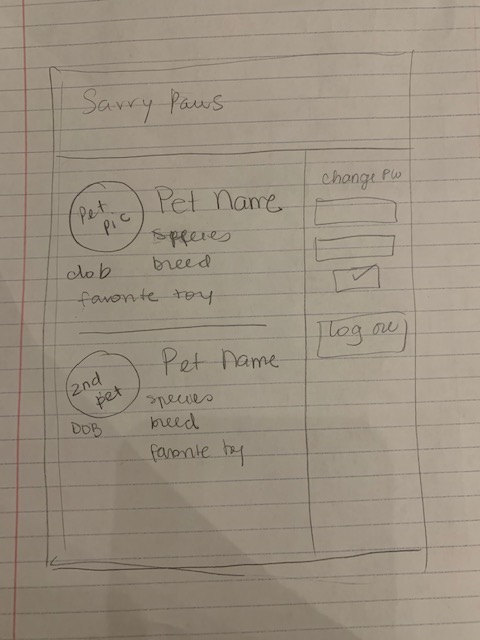 Savvy Paws
Pet
pic
Pet Name
species
dob
breed
favorite toy
2nd
pet
Pet Name
species
DOB
breed
favorite toy
change PW
log ou